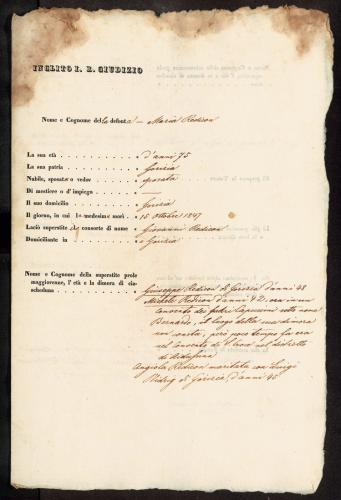 INCLITO I. R. GIUDIZIO
Nome e Cognome della defunta — Maria Redison
La sua età . . . . . . . . . . . . « d'anni 75
La sua patria . . . . . . . . . . . « Gorizia
Nubile, sposata o vedova . . . . . « sposata
Di mestiere o d'impiego . . . . . . « —
Il suo domicilio . . . . . . . . . « Gorizia
Il giorno, in cui la medesima morì . « 15 Ottobre 1847
Lasciò superstite di consorte di nome « Giovanni Redison
Domiciliante in . . . . . . . . . « Gorizia
Nome e Cognome della superstite prole
maggiorenne, l'età e la dimora di cia-
scheduna . . . . . . . . . . . . «
Giuseppe Redison di Gorizia d'anni 48
Michele Redison d'anni 42. era in un
convento dei padri Capuccini sotto nome
Bernardo, il luogo della sua dimora
non consta, però poco tempo fa era
nel convento di S. Croce nel distretto
di
Angiola Redison maritata con Luigi
di Gorizia, d'anni 45